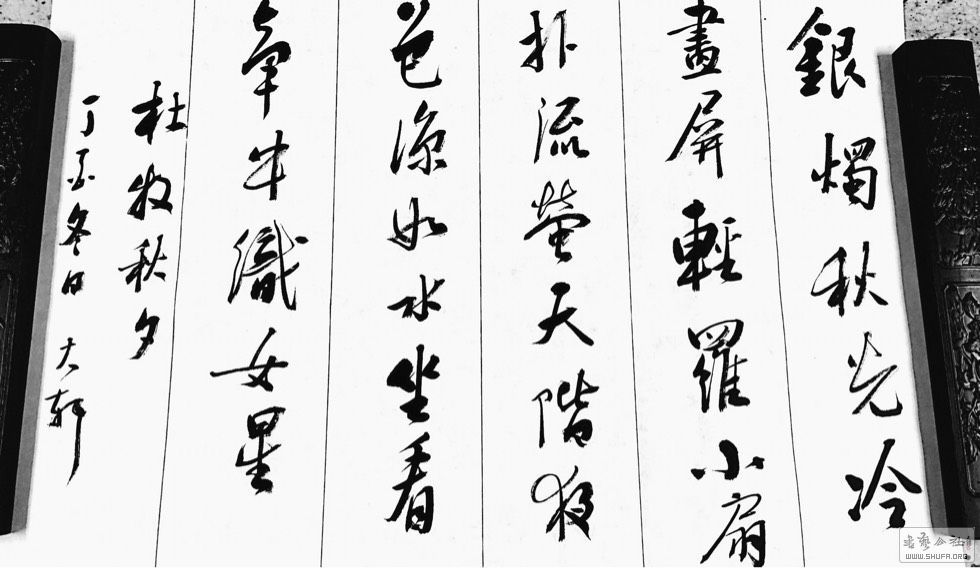 銀燭秋光冷
畫屏輕羅小扇
扑流螢天階夜
色涼如水坐看
牽牛織女星
杜牧秋夕
丁酉冬日 大軒
WWW.SHUFA.ORG